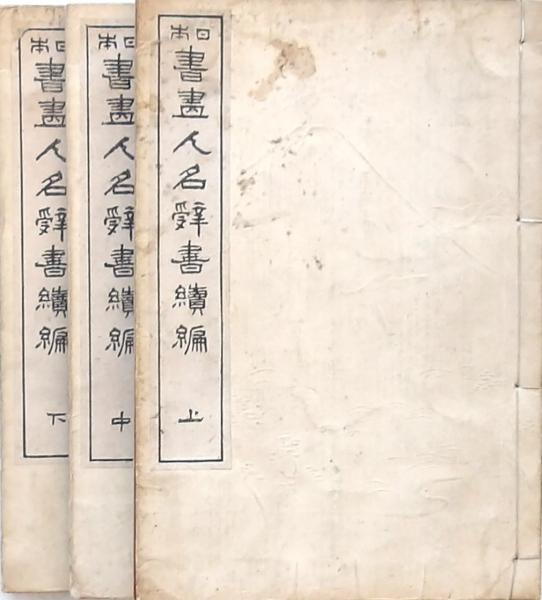 日本書畫人名辤書續編 上
日本書畫人名辤書續編 中
日本書畫人名辤書續編 下